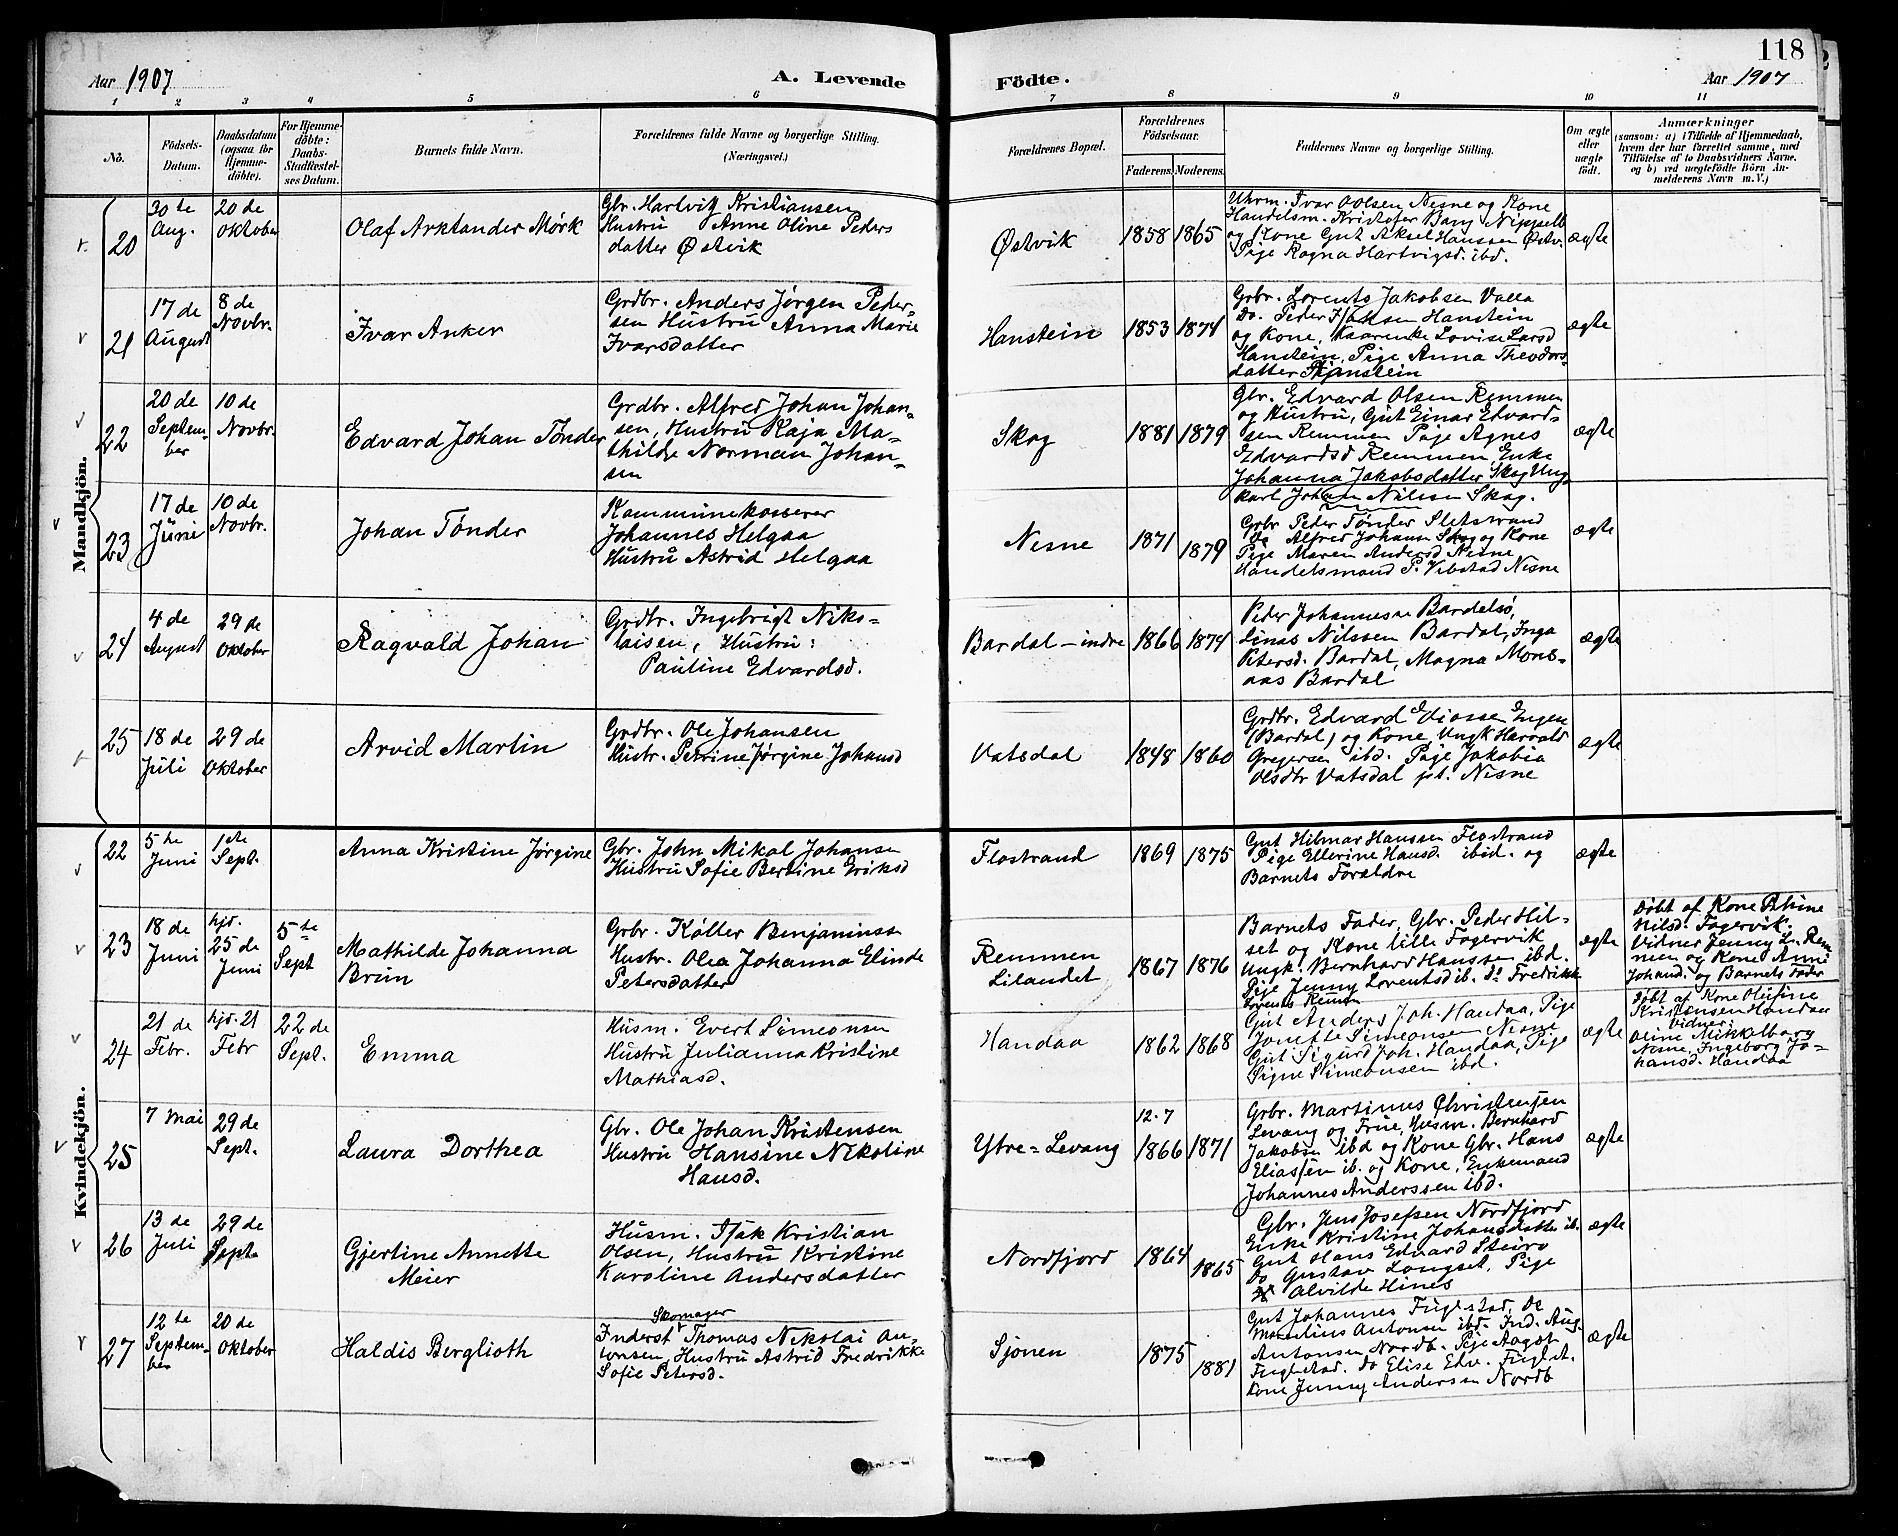 118
Aar 1907
A. Levende Födte.
Aar 1907
1 2 3 4 5 6 7 8 9 10 11
No.
Födsels-
Datum.
Daabsdatum
(ogsaa for
Hjemme-
döbte).
For Hjemme-
döbte:
Daabs-
Stadfæstel-
ses Datum.
Barnets fulde Navn.
Forældrenes fulde Navne og borgerlige Stilling.
(Næringsvei.)
Forældrenes Bopæl.
Forældrenes
Födselsaar.
Faderens. Moderens.
Faddernes Navne og borgerlige Stilling.
Om ægte
eller
uægte
födt.
Anmærkninger
(saasom: a) i Tilfælde af Hjemmedaab,
hvem der har forrettet samme, med
Tilföielse af to Daabsvidners Navne.
og b) ved uægtefödte Börn An-
melderens Navn m. V.)
Mandkjön.
20
30te
Aug.
20de
Oktober
Olaf Arktander Mørk
Gbr. Hartvig Kristiansen
Hustru Anne Oline Peders
datter Østvik
Østvik
1858 1865
Uhrm. Ivar Olsen Nesne og Kone
Handelsm. Kristofer Bang
og Kone Gut Aksel Hanssen Østv.
Pige Ragna Hartvigsd. ibd.
ægte
21
17de
August
8de
Novbr.
Ivar Anker
Grdbr. Anders Jørgen Peder-
sen Hustru Anna Marie
Ivarsdatter
Hanstein
1853 1874
Grbr. Lorents Jakobsen Valla
Do. Peder Isaksen Hanstein
og Kone, Kaarenke Lovise Larsd
Hanstein, Pige Anna Theodors-
datter Hanstein
ægte
22
20de
Septem-
ber
10de
Novbr.
Edvard Johan Tønder
Grdbr. Alfred Johan Johan-
sen, Hustru Kaja Ma-
thilde Norman Johan-
sen
Skog
1881 1879
Gbr. Edvard Olsen Remmen
og Hustru, Gut Einar Edvard-
sen Remmen Pige Agnes
Edvardsd Remmen, Enke
Johanna Jakobsdatter Skog Ung
karl Johan Nilsen Skog.
ægte
23
17de
Juni
10de
Novbr.
Johan Tønder
Kommunekasserer
Johannes Helgaa
Hustru Astrid Helgaa
Nesne
1871 1879
Grbr Peder Tønder Sletstrand
Do Alfred Johansen Skog og Kone
Pige Maren Andersd Nesne
Handelsmand P. Vibstad Nesne
ægte
24
4de
August
29de
Oktober
Ragvald Johan
Grdbr. Ingebrigt Niko-
laisen, Hustru:
Pauline Edvardsd.
Bardal-indre
1866 1874
Peder Johannesen Bardalsø,
Linas Nilssen Bardal, Inga
Petersd. Bardal, Magna Mons-
aas Bardal
ægte
25
18de
Juli
29de
Oktober
Arvid Martin
Grdbr. Ole Johansen
Hustr. Petrine Jørgine Johansd
Vatsdal
1848 1860
Grdbr. Edvard Engen
(Bardal) og Kone Ungk Harvald
Gregersen ibd. Pige Jakobia
Olsdtr Vatsdal pt. Nesne
ægte
Kvindekjön.
22
5te
Juni
1ste
Sept.
Anna Kristine Jørgine
Gbr. John Mikal Johanse
Hustru Sofie Bersine Eriksd
Flostrand
1869 1875
Gut Hilmar Hanssen Flostrand
Pige Ellerine Hansd. ibid. og
Barnets Forældre
ægte
23
18de
Juni
hjd.
25de
Juni
5te
Sept
Mathilde Johanna
Brun
Grbr. Køller Benjaminss
Hustr. Olea Johanna Elinde
Petersdatter
Remmen
Lilandet
1867 1876
Barnets Fader, Gbr. Peder Hil-
set og Kone lille Fagervik
Ungk. Bernhard Hanssen ibd.
Pige Jenny Lorentsd ib. Do Fredrikke
Lorents Remen
ægte
Døbt af Kone Petrine
Nilsd. Fagervik.
Vidner Jenny L. Rem
men og Kone Anne
Johand. og Barnets Fader
24
21de
Febr.
hjd. 21
Febr
22de
Sept.
Emma
Husm. Evert Simeonsen
Hustru Julianna Kristine
Mathiasd.
Handaa
1862 1868
Gut Anders Joh. Handaa, Pige
Josefte Simeonsen Nesne
Gut Sigurd Joh. Handaa, Pige
Signe Simeonsen ibd.
ægte
Døbt af Kone Olufine
Kristensen Handaa
Vidner:
Oline Mikkelborg
Nesne, Ingeborg Jo-
hansd. Handaa
25
7 Mai
29de
Sept.
Laura Dorthea
Gbr. Ole Johan Kristensen
Hustru Hansine Nikoline
Hansd.
Ytre-Levang
12-7
1866 1871
Grbr. Martinus Christensen
Levang og Frue, Husm. Bernhard
Jakobsen ibd og Kone Gbr. Hans
Eliassen ib. og Kone, Enkemand
Johannes Anderssen ibd.
ægte
26
13de
Juli
29de
Sept
Gjertine Annette
Meier
Husm. Isak Kristian
Olsen, Hustru Kristine
Karoline Andersdatter
Nordfjord
1864 1865
Gbr. Jens Josefsen Nordfjord
Enke Kristine Johansdatte ib.
Gut Hans Edvard Steiro
Do Gustav Langset, Pige
Alvilde Hines
ægte
27
12te
Septem-
ber
20de
Oktober
Haldis Berglioth
Skomager
Inderst Thomas Nikolai An-
tonsen, Hustru Astrid Fredrikke
Sofie Petersd.
Sjonen
1875 1881
Gut Johannes Fuglestad, Do
Martelius Antonsen ibd. Ind. Aug.
Antonsen Nordb. Pige Aagot
Fuglestad. Do Elise Edv. Fuglst.
Kone Jenny Anderssen Nordb
ægte